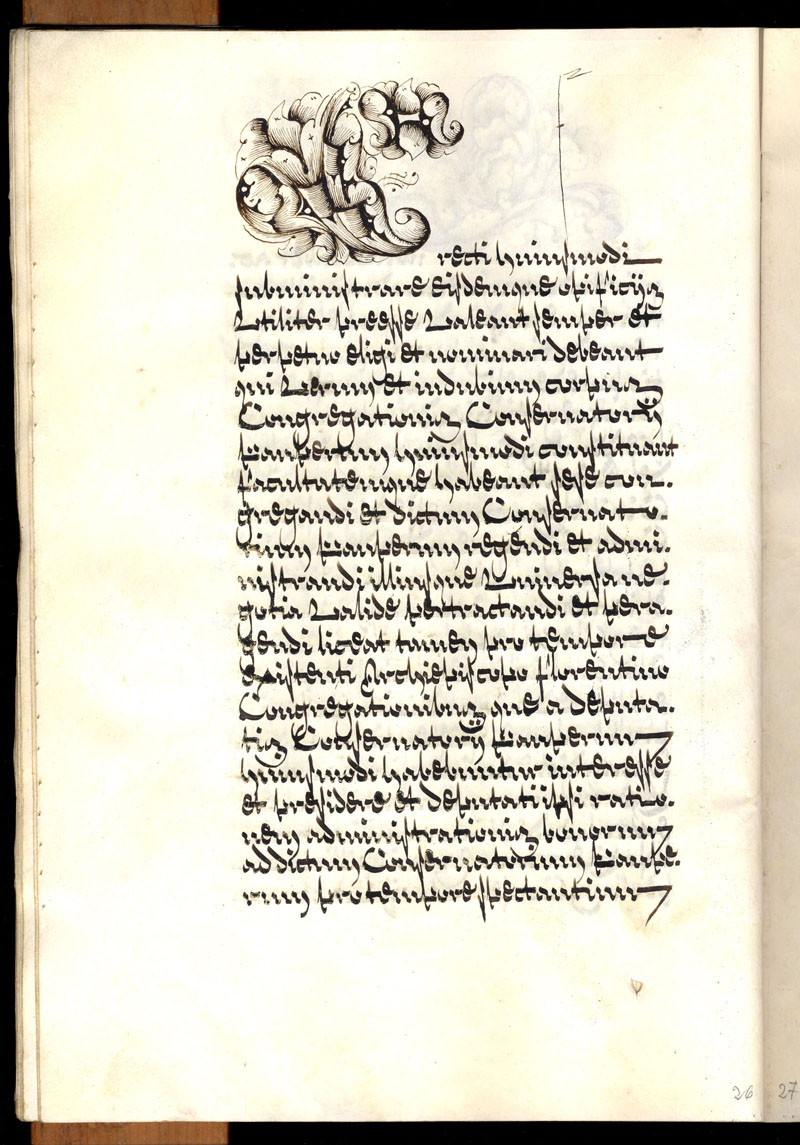 E recti huiusmodi
subministrare eisdemque opificijs
Vtiliter preesse Valeant semper et
perpetuo eligi et nominari debeant
qui Verum et indubium corpus
Congregationis Conseruatorij
Pauperum huiusmodi constituant
facultatemque habeant sese con.
gregandi et dictum Conseruato.
rium Pauperum regendi et admi.
nistrandi illiusque Vniuersa ne.
gotia Valide pertractandi et pera.
gendi liceat tamen pro tempore
existenti Archiepiscopo florentino
Congregationibus que a deputa.
tis Conseruatorij Pauperum
huiusmodi habebuntur interesse
et presidere et deputati ipsi ratio.
nem administrationis bonorum
ad dictum Conseruatorium Paupe.
rum pro tempore spectantium
26 27